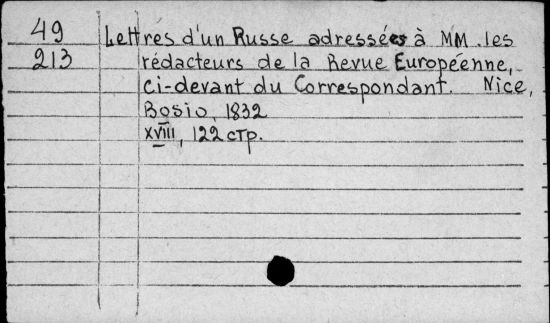 49 Lettres d'un Russe adressées à MM. les
213 rédacteurs de la Revue Européenne,
ci-devant du Correspondant. Nice,
Bosio, 1832
XVIII, 122 стр.